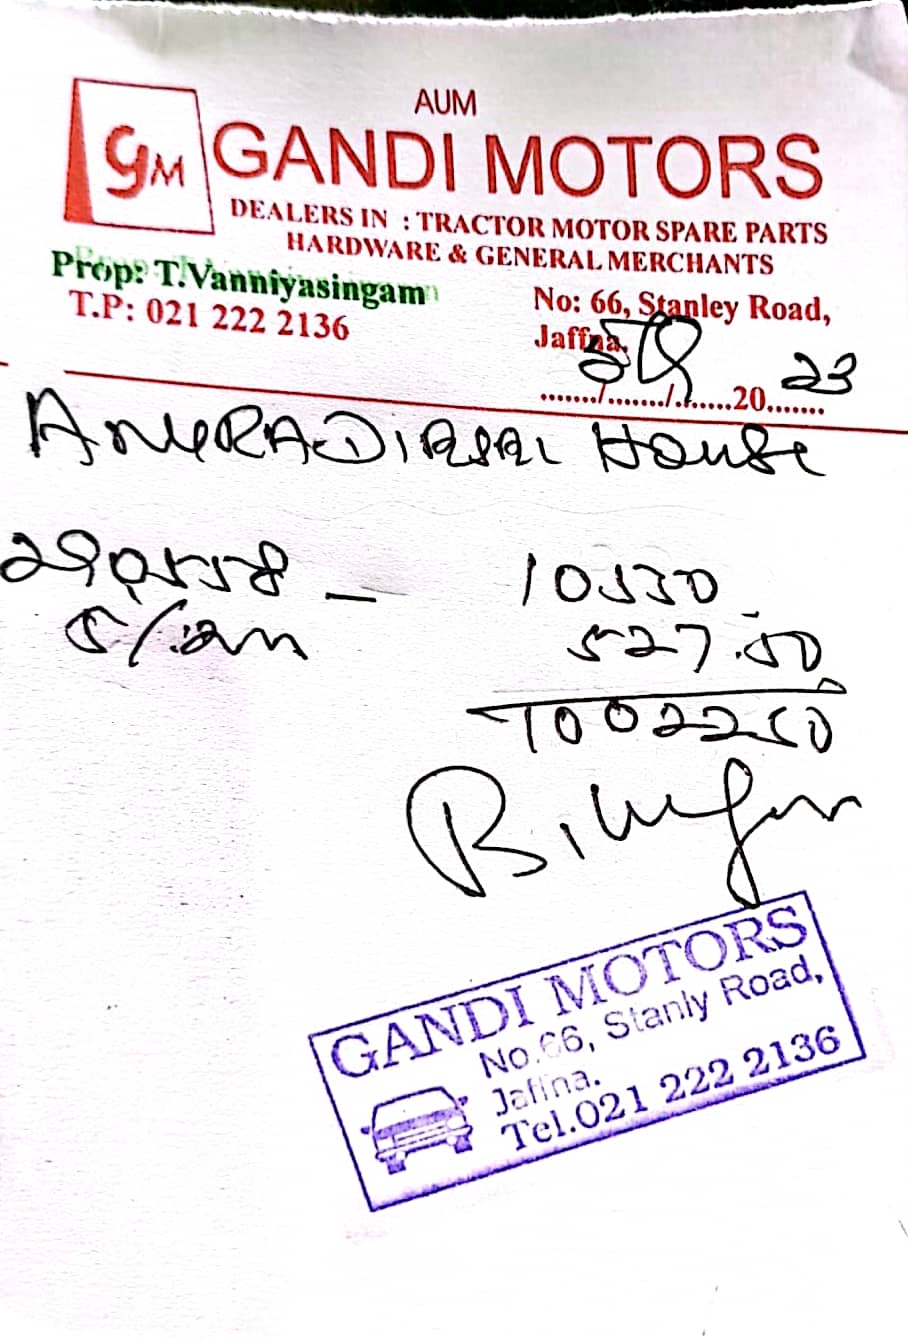 AUM
GM GANDI MOTORS
DEALERS IN : TRACTOR MOTOR SPARE PARTS
HARDWARE & GENERAL MERCHANTS
Prop: T.Vanniyasingam
T.P: 021 222 2136
No: 66, Stanley Road,
Jaffna.
......./......./.......20.......
23
House
10550
527.50
1002250
GANDI MOTORS
No.66, Stanly Road,
Jaffna.
Tel.021 222 2136